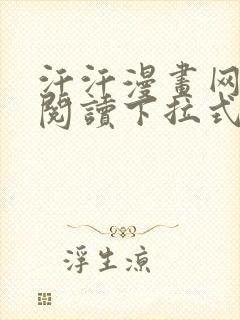 汗汗漫畫网
閱讀下拉式
浮生涼